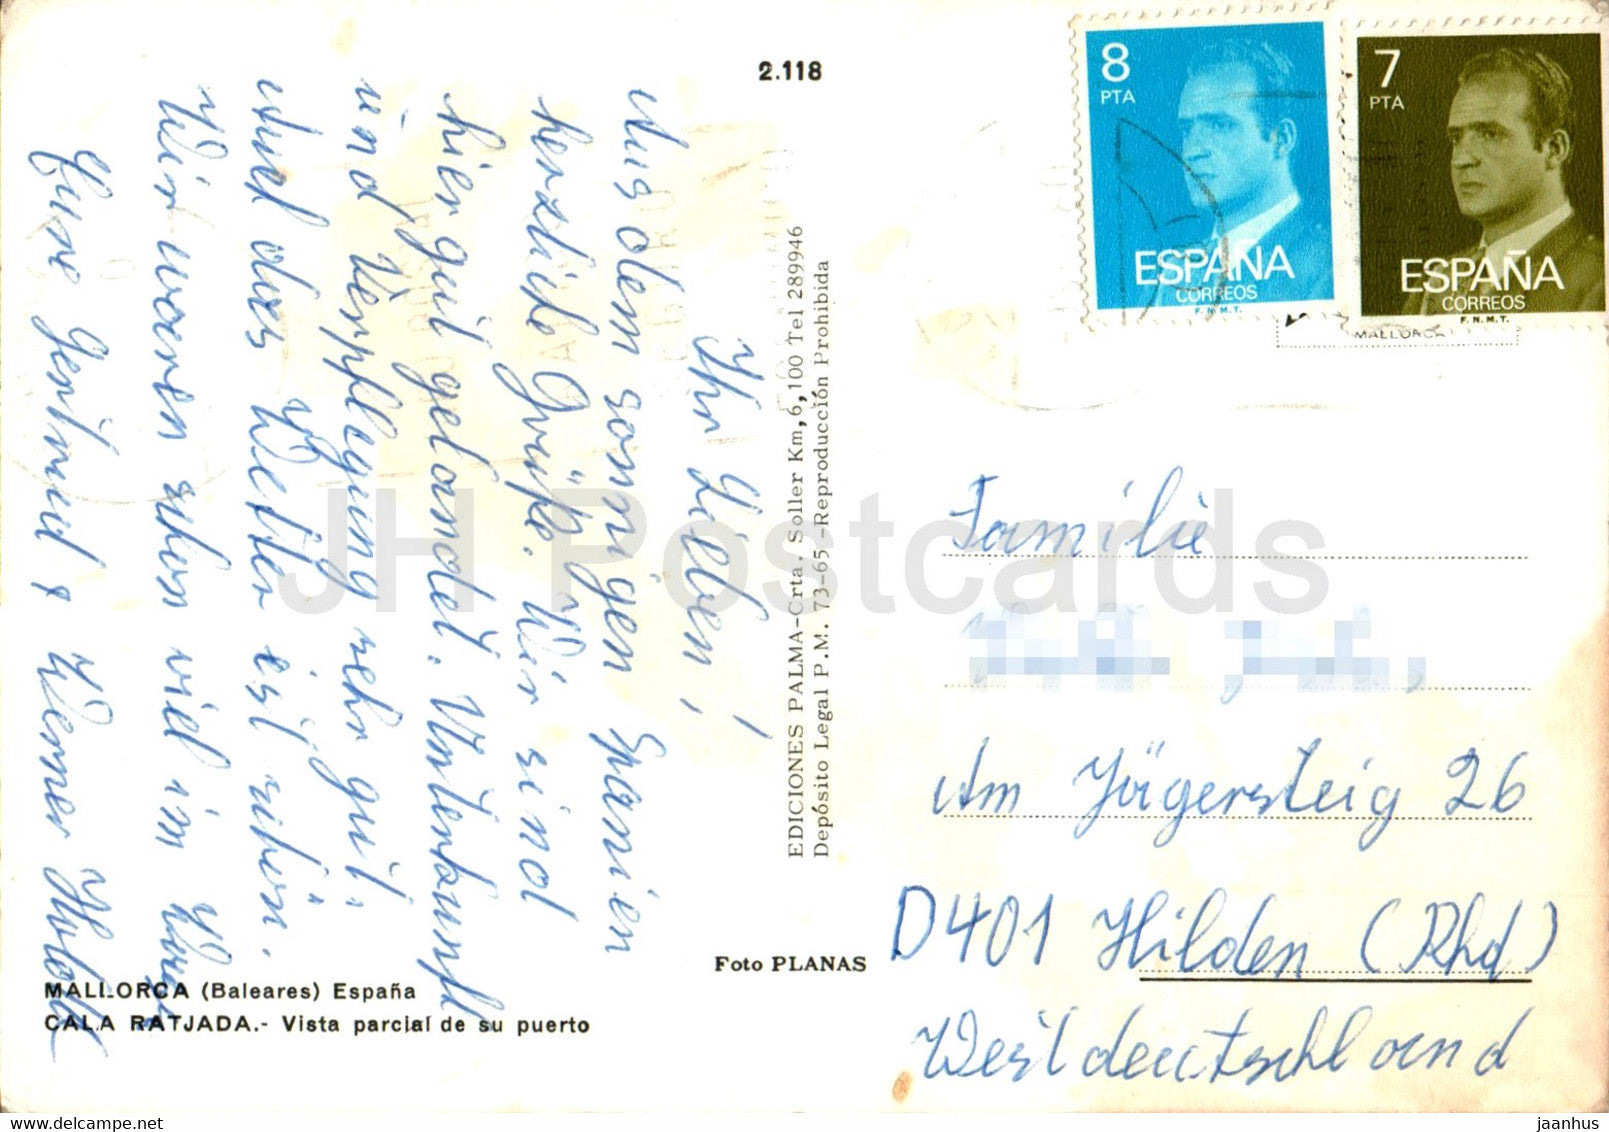 2.118
Ihr Lieben!
Aus dem sonnigen Spanien
herzliche Grüße. Wir sind
hier gut gelandet. Unterkunft
und Verpflegung sehr gut.
und das Wetter ist schön.
Wir waren schon viel im
Eure Gertrud & Werner
EDICIONES PALMA-Crta. Soller Km, 6,100 Tel 289946
Depósito Legal P.M. 73-65-Reproducción Prohibida
Foto PLANAS
MALLORCA (Baleares) España
CALA RATJADA.- Vista parcial de su puerto
8
PTA
ESPAÑA
CORREOS
F.N.M.T.
7
PTA
ESPAÑA
CORREOS
F.N.M.T.
MALLORCA
Familie
Am Jägersteig 26
D401 Hilden (Rhd)
Westdeutschland
JH Postcards
delcampe.net
jaanhus